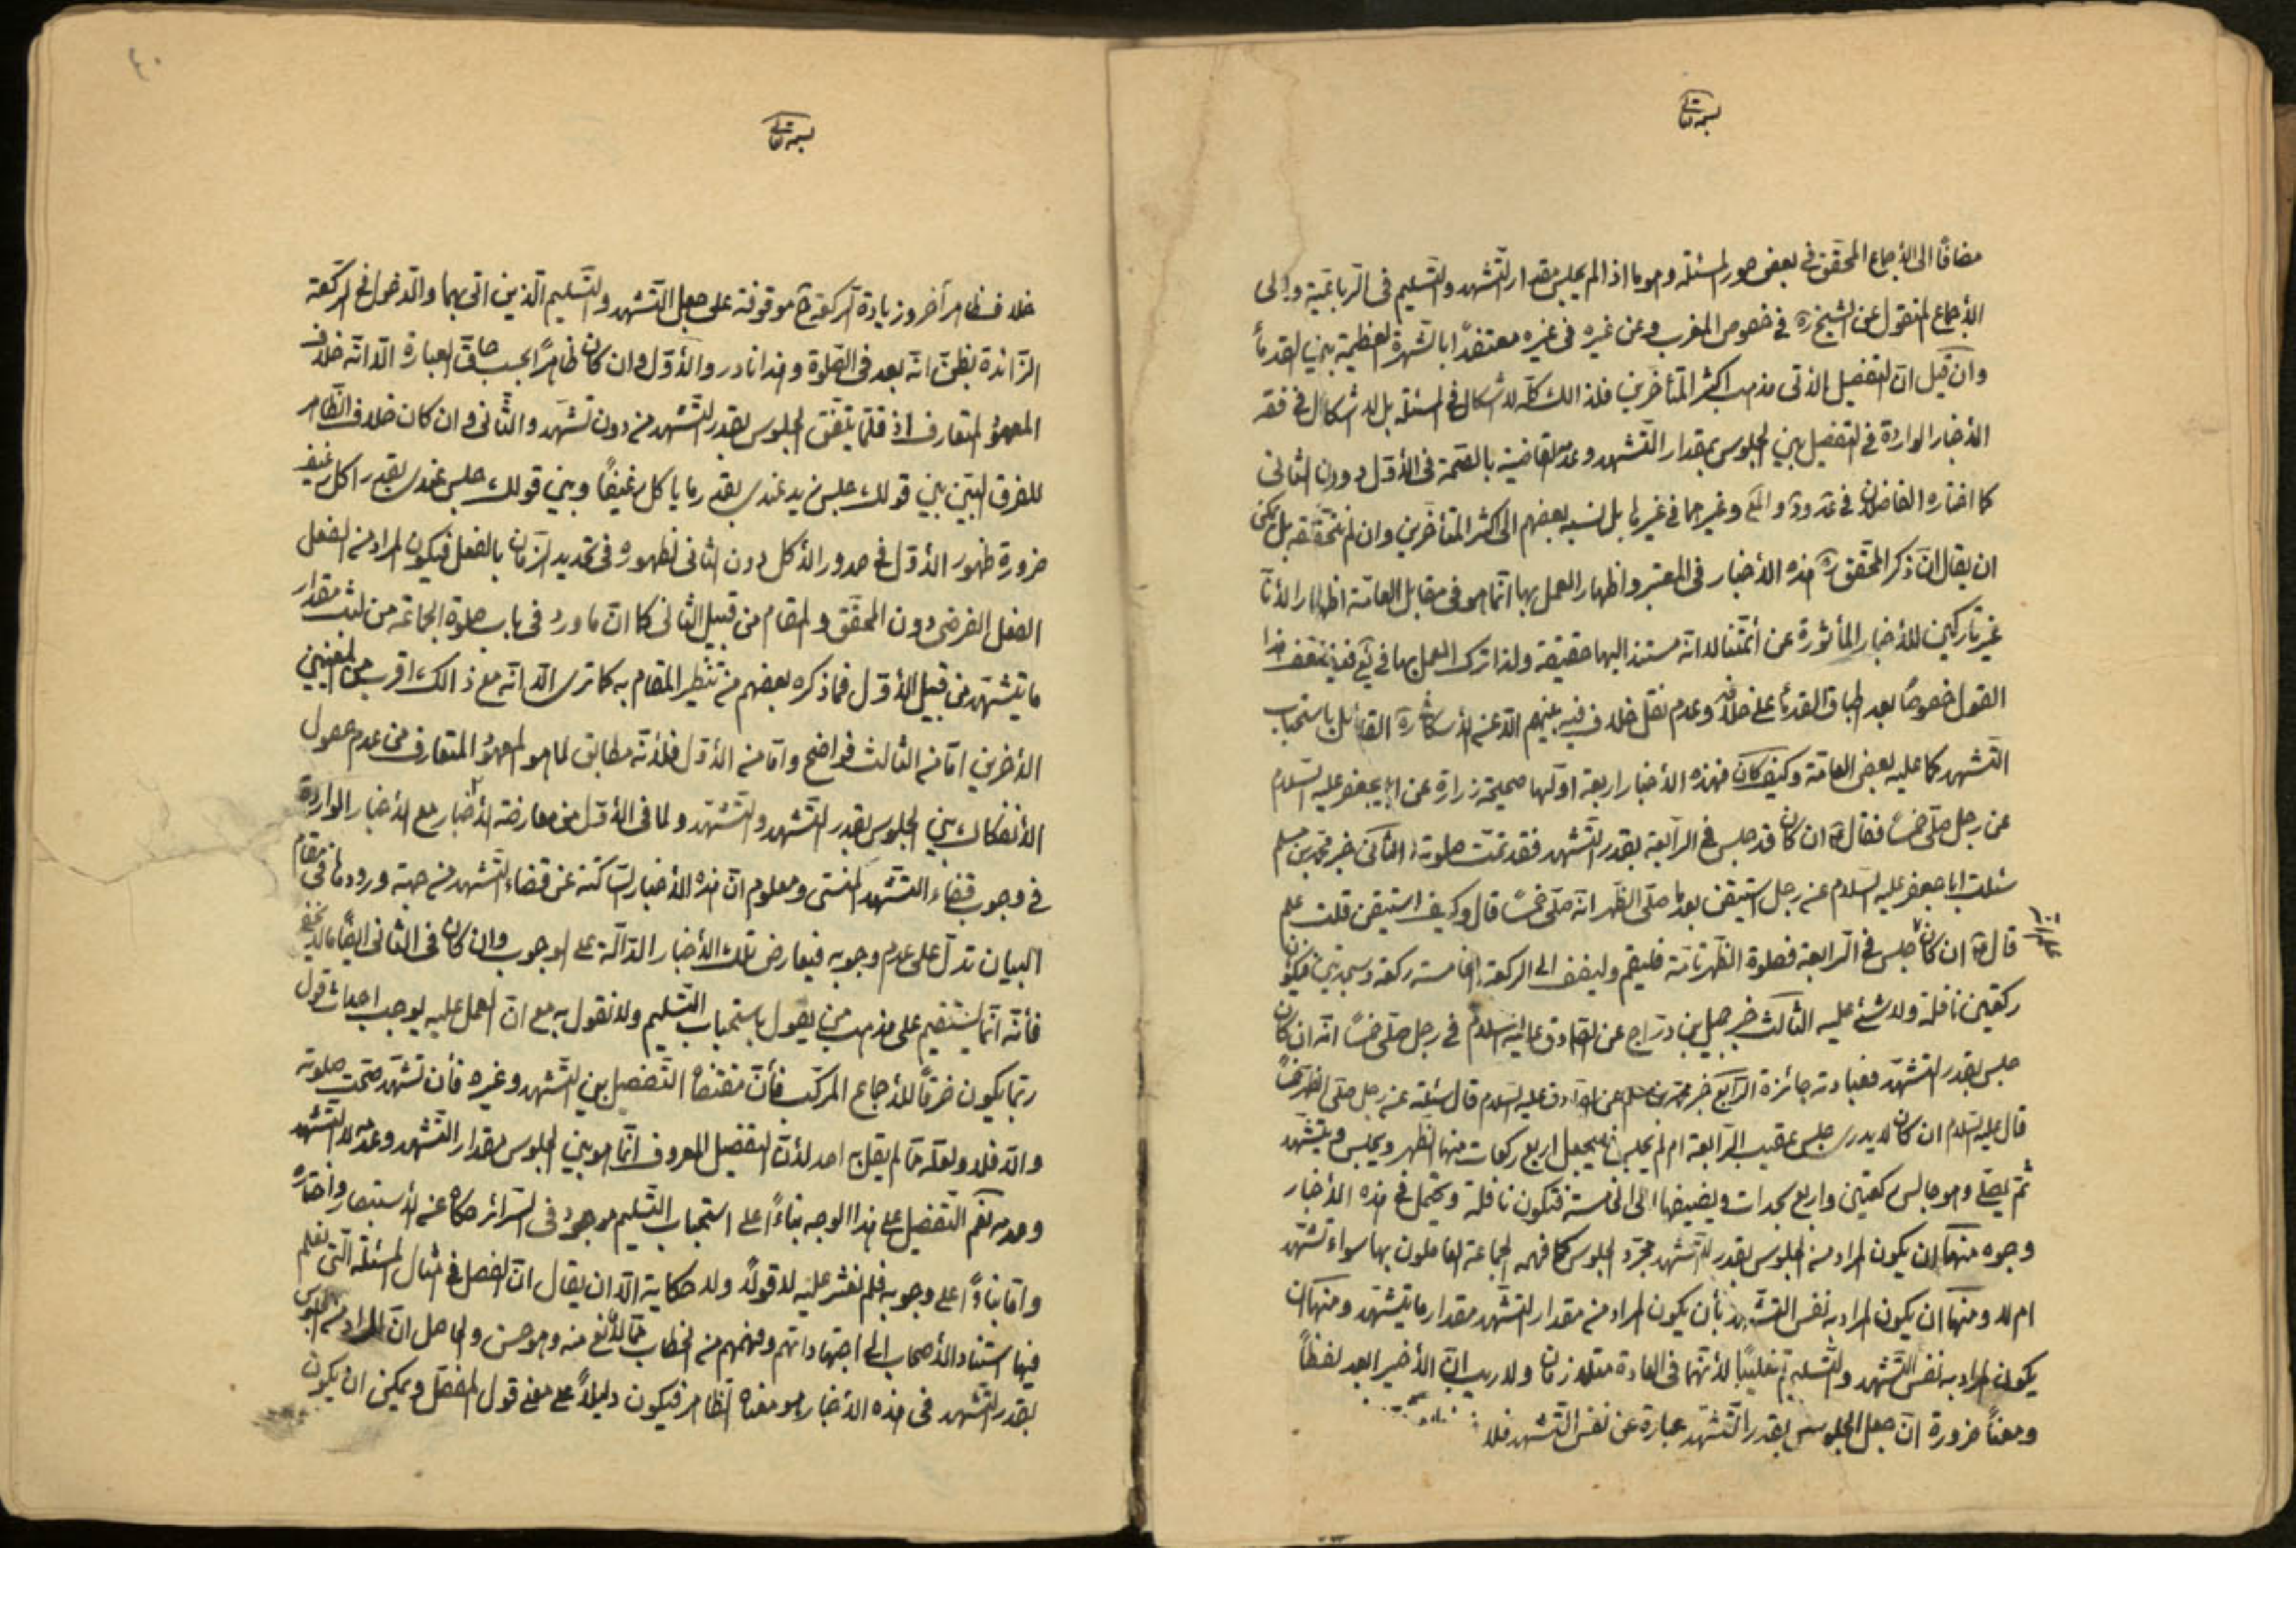 بسمه تعالى
مضافًا الى الأجماع المحقق فى بعض صور المسئلة وهو ما اذا لم يجلس مقدار التّشهد والتّسليم فى الرباعيّة والى
الأجماع المنقول عن الشيخ ره فى خصوص المغرب وعن غيره فى غيره معتضدًا بالشهرة العظيمة بين القدمأ
وان قيل انّ التفصيل الآتى مذهب اكثر المتأخرين فلذالك كلّه لا اشكال فى المسئلة بل لا اشكال فى فقه
الأخبار الواردة فى التفصيل بين الجلوس بمقدار التّشهد وعدمه القاضية بالصّحّة فى الأوّل دون الثانى
كما اختاره الفاضلان فى وغيرهما فى غيرها بل نسبه بعضهم الى اكثر المتأخرين وان لم نتحقّقه بل يمكن
ان يقال انّ ذكر المحقّق ره هذه الأخبار فى المعتبر واظهار العمل بها انّما هو فى مقابل العامّة اظهارا لأنّا
غير تاركين للأخبار المأثورة عن أئمّتنا لا انّه مستند اليها حقيقة ولذا ترك العمل بها فى يع فيضعف هذا
القول خصوصًا بعد اطباق القدمأ على خلافه وعدم نقل خلاف فيه عنهم الّا عن الأسكافى ره القائل باستحباب
التّشهد كما عليه بعض العامّة وكيف كان فهذه الأخبار اربعة اوّلها صحيحة زرارة عن ابى جعفر عليه السّلام
عن رجل صلّى خمسًا فقال ع ان كان قد جلس فى الرّابعة بقدر التّشهد فقد تمّت صلوته الثانى خبر محمد بن مسلم
سئلت ابا جعفر عليه السّلام عن رجل استيقن بعد ما صلّى الظّهر انّه صلّى خمسًا قال وكيف استيقن قلت علم
قال ع ان كان جلس فى الرابعة فصلوة الظّهر تامّة فليقم وليضف الى الركعة الخامسة ركعة وسجدتين فيكونان
ركعتين نافلة ولا شئ عليه الثالث خبر جميل بن درّاج عن الصّادق عليه السّلام فى رجل صلّى خمسًا انّه ان كان
جلس بقدر التّشهّد فعبادته جائزة الرّابع خبر محمّد بن مسلم عن الصّادق عليه السّلام قال سئلته عن رجل صلّى الظّهر خمسًا
قال عليه السّلام ان كان لا يدرى جلس عقيب الرّابعة ام لم يجلس فليجعل اربع ركعات منها الظّهر ويجلس ويتشهّد
ثمّ يصلّى وهو جالس ركعتين واربع سجدات ويضيفها الى الخامسة فتكون نافلة ويحتمل فى هذه الأخبار
وجوه منها ان يكون المراد من الجلوس بقدر التّشهد مجرّد الجلوس كما فهمه الجماعة العاملون بها سواء تشهّد
ام لا ومنها ان يكون المراد به نفس التّشهد بأن يكون المراد من مقدار التّشهّد مقدار ما يتشهّد ومنها ان
يكون المراد به نفس التّشهد والتّسليم تغليبًا لأنّهما فى العادة متلازمان ولا ريب انّ الأخير ابعد لفظًا
ومعنًا ضرورة انّ جعل الجلوس بقدر التّشهّد عبارة عن نفس التّشهد
٤٠
بسمه تعالى
خلاف ظاهر آخر وزيادة الركعة ح موقوفة على جعل التّشهد والتّسليم الّذين اتى بهما والدّخول فى الرّكعة
الزّائدة بظنّ انّه بعد فى الصّلوة وهذا نادر والأوّل وان كان ظاهرًا بحسب حاقّ العبارة الّا انّه خلاف
المعهود المتعارف اذ قلّما يتّفق الجلوس بقدر التّشهّد من دون تشهّد والثّانى وان كان خلاف الظّاهر
للفرق البيّن بين قولك جلس زيد عندى بقدر ما يأكل رغيفًا وبين قولك جلس عندى بقدر اكل رغيف
ضرورة ظهور الأوّل فى صدور الأكل دون الثانى لظهوره فى تحديد الزّمان بالفعل فيكون المراد من الفعل
الفعل الفرضى دون المحقّق والمقام من قبيل الثانى كما انّ ما ورد فى باب صلوة الجماعة من لبث مقدار
ما يتشهّد من قبيل الأوّل فما ذكره بعضهم من تنظير المقام به كما ترى الّا انّه مع ذالك اقرب من المعنيين
الأخرين امّا من الثالث فواضح وامّا من الأوّل فلأنّه مطابق لما هو المعهود المتعارف من عدم حصول
الأنفكاك بين الجلوس بقدر التّشهد والتّشهّد ولما فى الأوّل من معارضة الأخبار مع الأخبار الواردة
فى وجوب قضاء التّشهّد المنسى ومعلوم انّ هذه الأخبار السّاكتة عن قضاء التّشهد من جهة ورودها فى مقام
البيان تدلّ على عدم وجوبه فيعارض تلك الأخبار الدّالّة على الوجوب وان كان فى الثانى ايضًا ما لا يخفى
فأنّه انّما يستقيم على مذهب من يقول باستحباب التّسليم ولا نقول به مع انّ العمل عليه يوجب احداث قول
ربّما يكون خرقًا للأجماع المركّب فأنّ مقتضاه التّفصيل بين التّشهد وغيره فأن تشهّد صحّت صلوته
والّا فلا ولعلّه ممّا لم يقل به احد لأنّ التفصيل المعروف انّما هو بين الجلوس مقدار التّشهد وعدمه لا التّشهد
وعدمه نعم التّفصيل على هذا الوجه بناءًا على استحباب التّسليم موجود فى السّرائر حكاه عن الأستبصار واختاره
وامّا بناءًا على وجوبه فلم نعثر عليه لا قولًا ولا حكاية الّا ان يقال انّ الفصل فى مثال المسئلة الّتى نعلم
فيها استناد الأصحاب الى اجتهاداتهم وفهمهم من الخطاب ممّا لا مانع منه وهو حسن والحاصل انّ المراد من الجلوس
بقدر التّشهد فى هذه الأخبار هو معناه الظّاهر فيكون دليلًا على معنى قول المفصّل ويمكن ان يكون